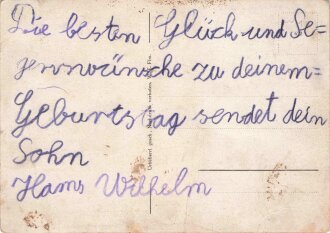 Die besten Glück und Se=
genswünsche zu deinem=
Geburtstag sendet dein
Sohn
Hans Wilhelm